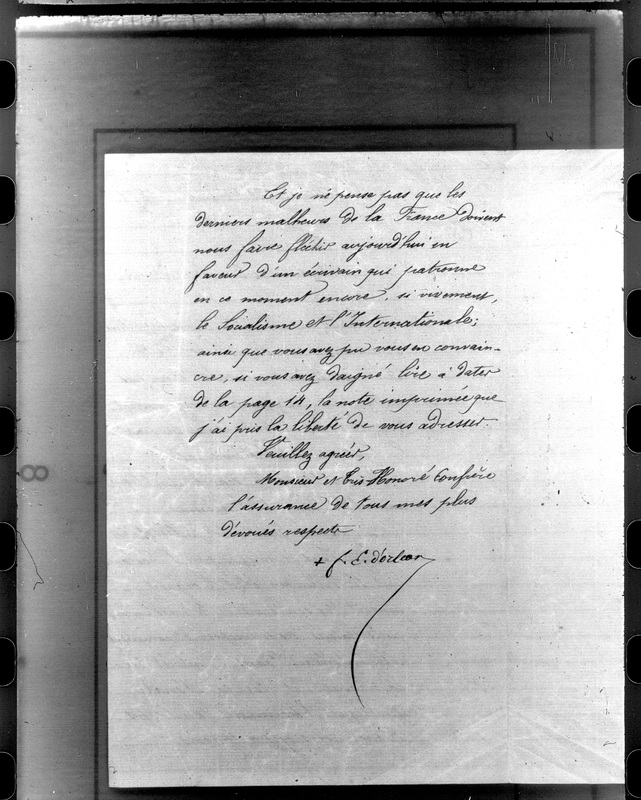 Et je ne pense pas que les
derniers malheurs de la France doivent
nous faire fléchir aujourd'hui en
faveur d'un écrivain qui patronne
en ce moment encore, si vivement,
le Socialisme et l'Internationale;
ainsi que vous avez pu vous en convain-
cre, si vous avez daigné lire à dater
de la page 14, la note imprimée que
j'ai pris la liberté de vous adresser.
Veuillez agréer,
Monsieur et Très Honoré Confrère
l'assurance de tous mes plus
dévoués respects
+ f. E. d'orléans
8